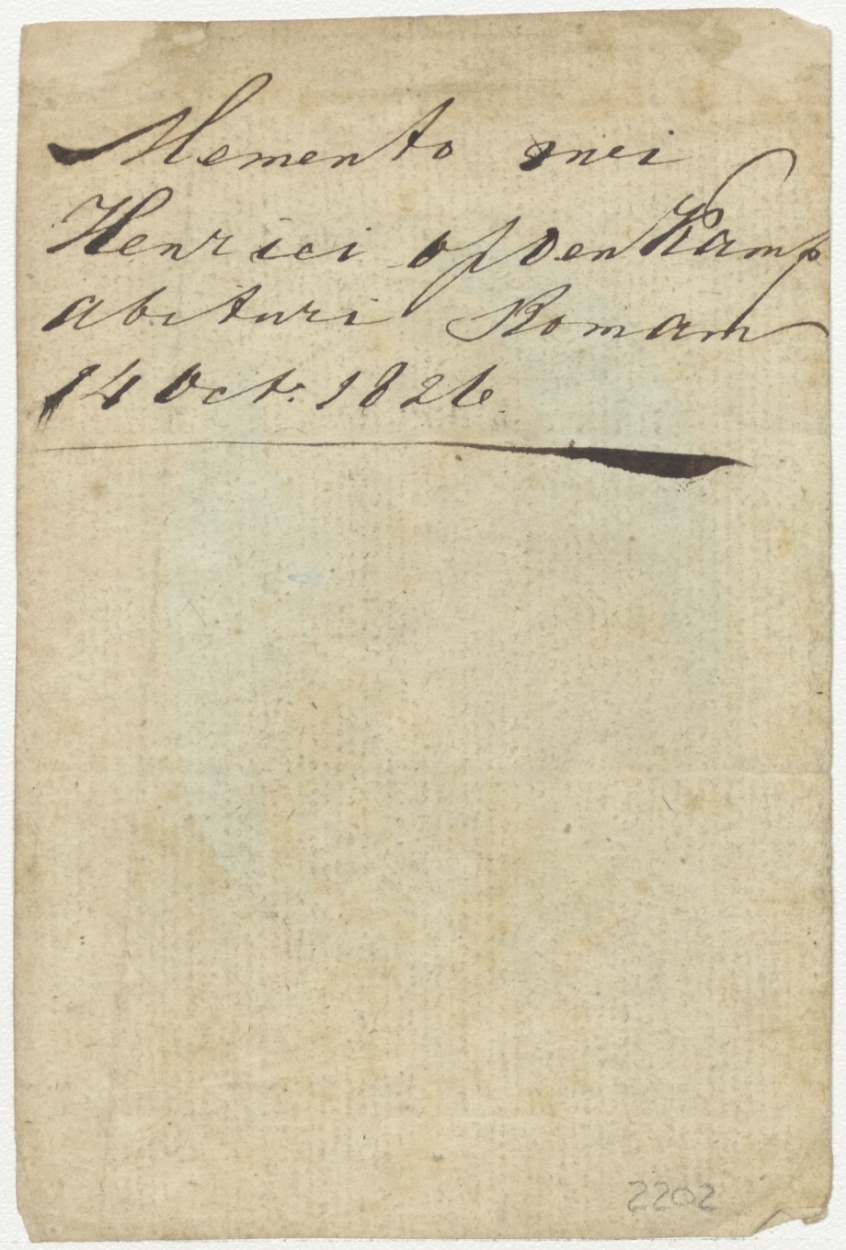 Memento mei
Henrici opden Kamp
abituri Romam
14 Oct. 1826
2202